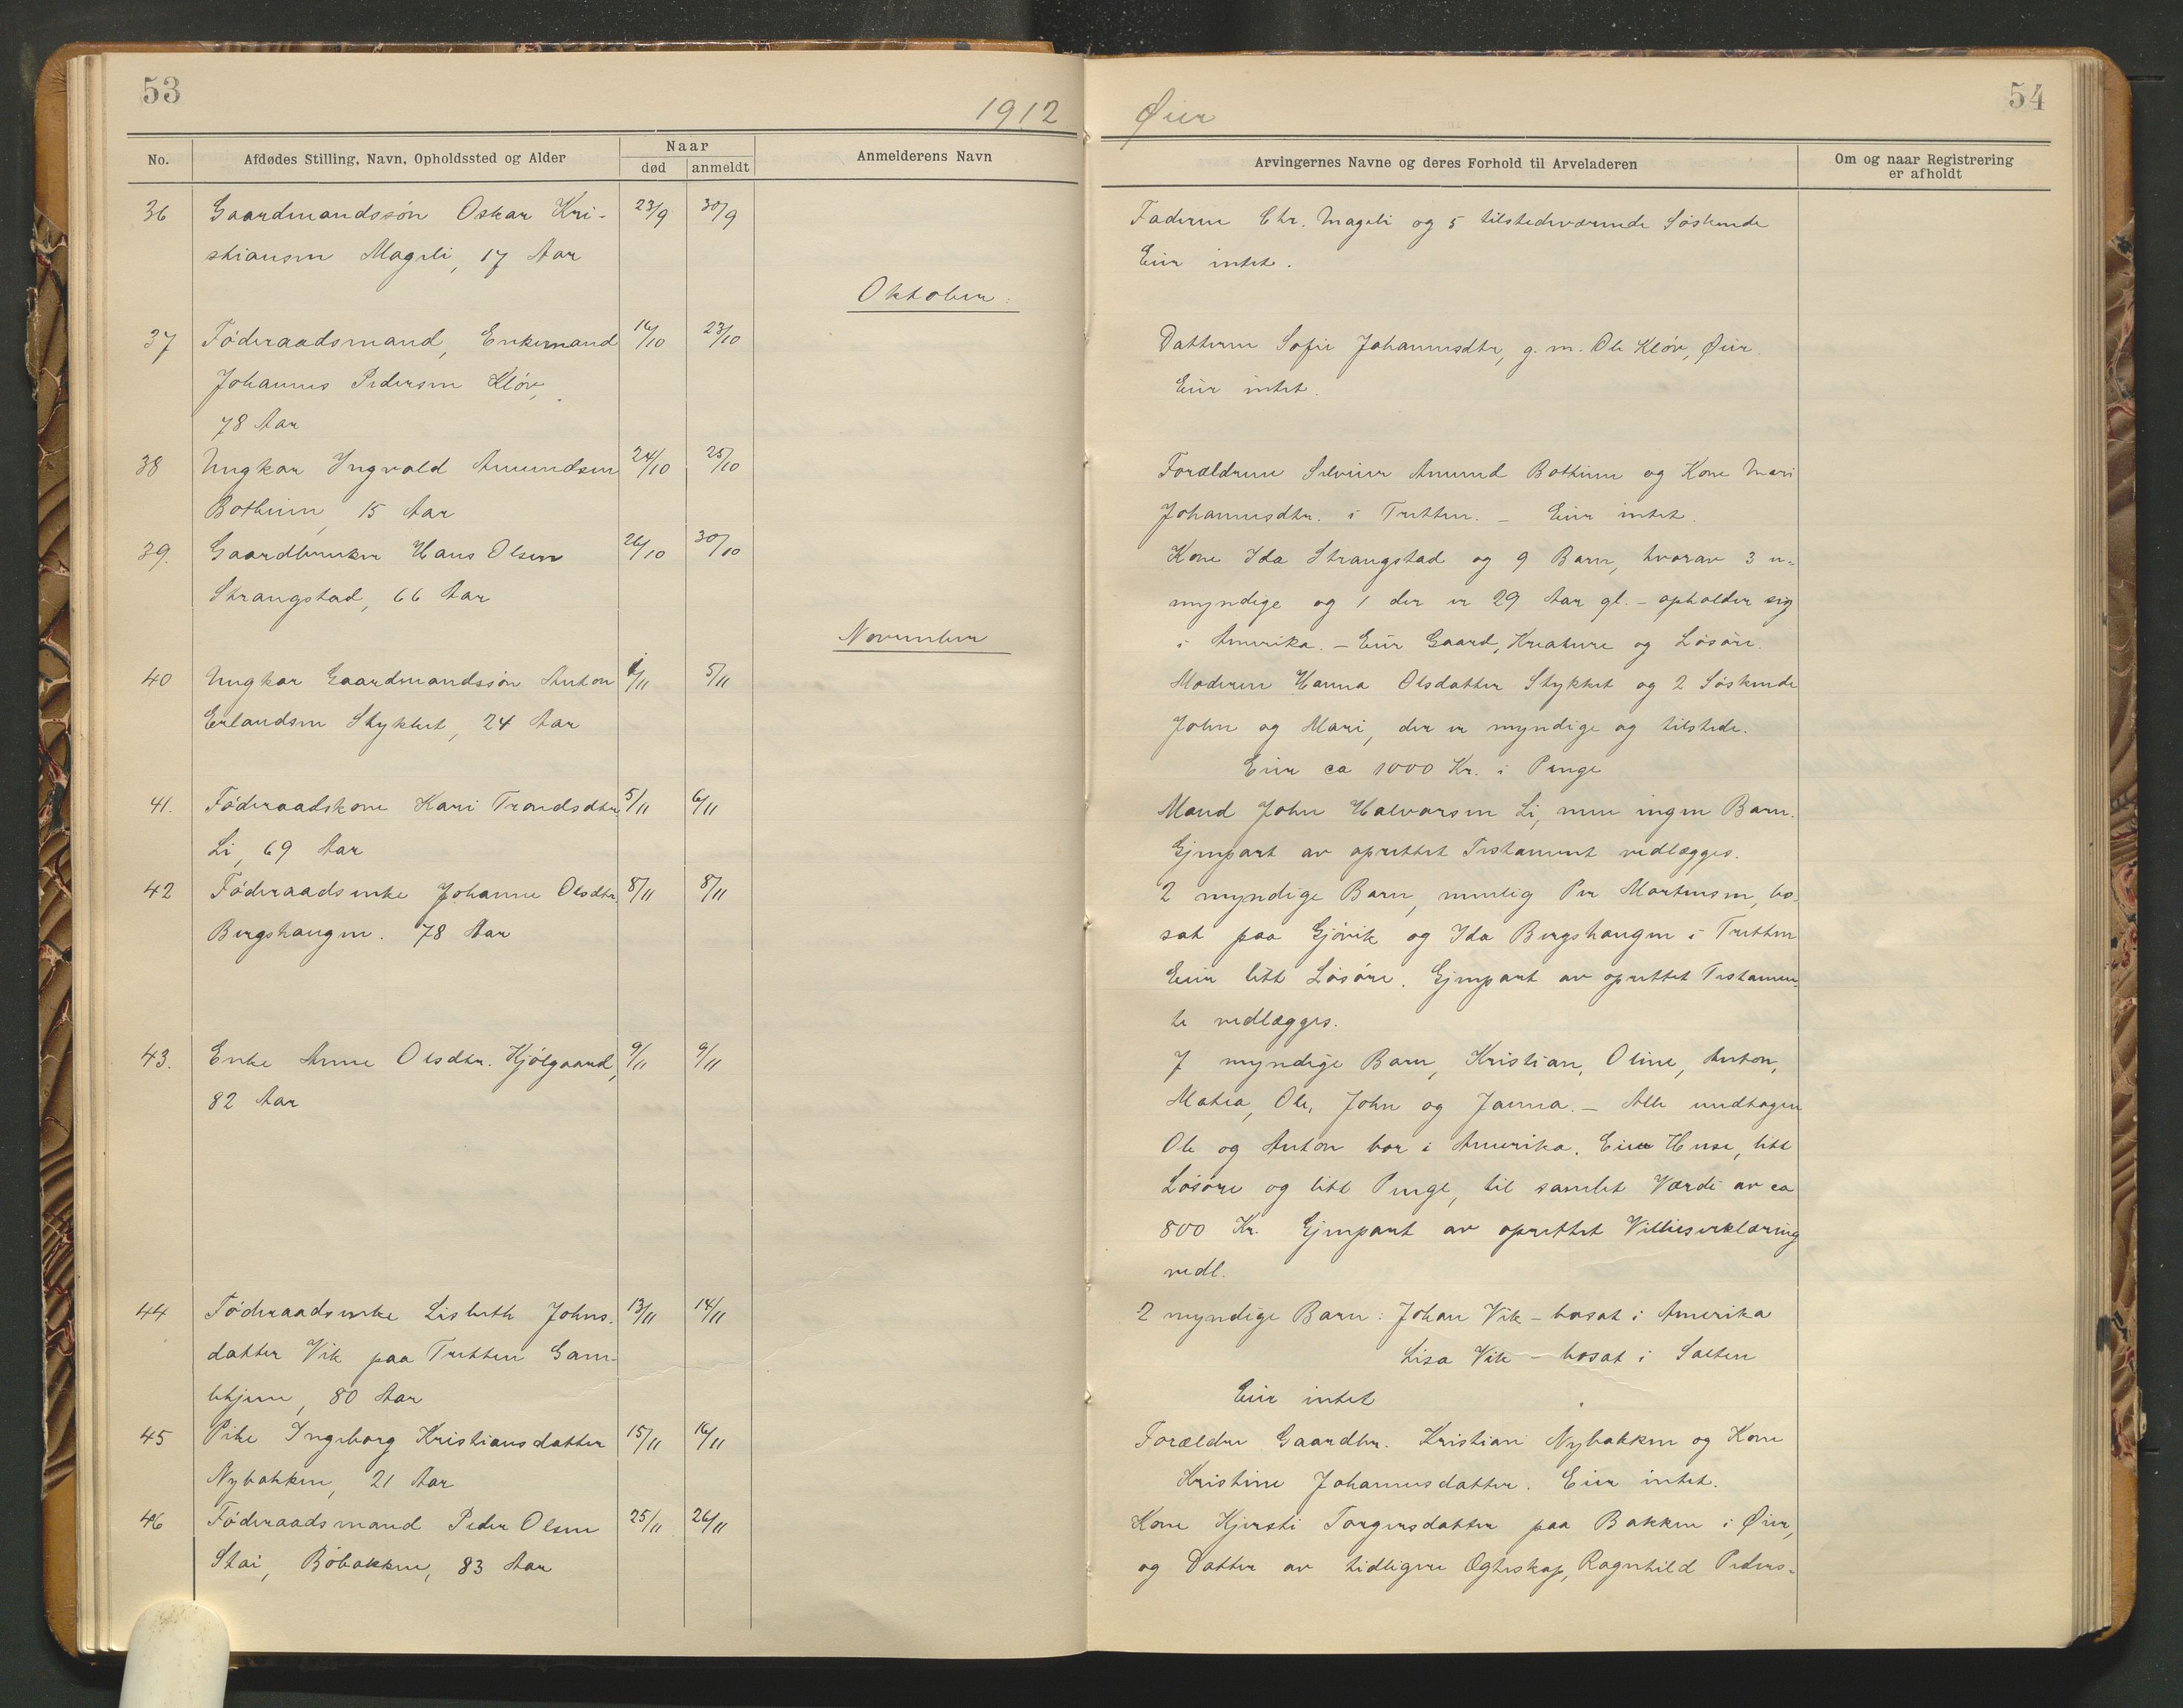 53
1912
No.
Afdødes Stilling, Navn, Opholdssted og Alder
Naar
død
anmeldt
Anmelderens Navn
36 Gaardmandssøn Oskar Kri- 23/9 30/9
stiansen Mageli, 17 Aar
Oktober:
37 Føderaadsmand, Enkemand 16/10 23/10
Johannes Pedersen Kløv,
78 Aar
38 Ungkar Ingvald Amundsen 24/10 25/10
Botheim, 15 Aar
39. Gaardbruker Hans Olsen 26/10 30/10
Strangstad, 66 Aar
November
40 Ungkar Gaardmandssøn Anton 1/11 5/11
Erlandsen Stykket, 24 Aar
41. Føderaadskone Kari Trondsdtr 5/11 6/11
Li, 69 Aar
42 Føderaadsenke Johanne Olsdtr. 8/11 8/11
Bergshaugen. 78 Aar
43. Enke Anne Olsdtr. Kjølgaard, 9/11 9/11
82 Aar
44 Føderaadsenke Lisbeth Johns- 13/11 14/11
datter Vik paa Tretten Gam-
lehjem, 80 Aar
45 Pike Ingeborg Kristiansdatter 15/11 16/11
Nybakken, 21 Aar
46 Føderaadsmand Peder Olsen 25/11 26/11
Stai, Bøbakken, 83 Aar
54
Øier
Arvingernes Navne og deres Forhold til Arveladeren
Om og naar Registrering
er afholdt
Faderen Chr. Mageli og 5 tilstedeværende Søskende
Eier intet.
Datteren Sofie Johannesdtr, g. m. Ole Kløv, Øier.
Eier intet.
Forældrene Selveier Amund Botheim og Kone Mari
Johannesdtr. i Tretten. – Eier intet.
Kone Ida Strangstad og 9 Barn, hvorav 3 u-
myndige og 1 der er 29 Aar gl. – opholder sig
i Amerika. – Eier Gaard, Kreature og Løsøre.
Moderen Hanna Olsdatter Stykket og 2 Søskende
John og Mari, der er myndige og tilstede.
Eier ca 1000 Kr. i Penge
Mand John Halvorsen Li, men ingen Barn.
Gjenpart av oprettet Testament vedlægges.
2 myndige Barn, nemlig Per Martensen, bo-
sat paa Gjøvik og Ida Bergshaugen i Tretten
Eier litt Løsøre. Gjenpart av oprettet Testamen-
te vedlægges.
7 myndige Barn, Kristian, Oline, Anton,
Matea, Ole, John og Janna. – Alle undtagen
Ole og Anton bor i Amerika. Eier Huse, litt
Løsøre og litt Penge, til samlet Værdi av ca
800 Kr. Gjenpart av oprettet Villieserklæring
vedl.
2 myndige Barn: Johan Vik – bosat i Amerika
Lisa Vik – bosat i Salten
Eier intet
Forældre Gaardbr. Kristian Nybakken og Kone
Kristine Johannesdatter. Eier intet.
Kone Kjersti Torgersdatter paa Bakken i Øier,
og Datter av tidligere Ægteskap, Ragnhild Peders-